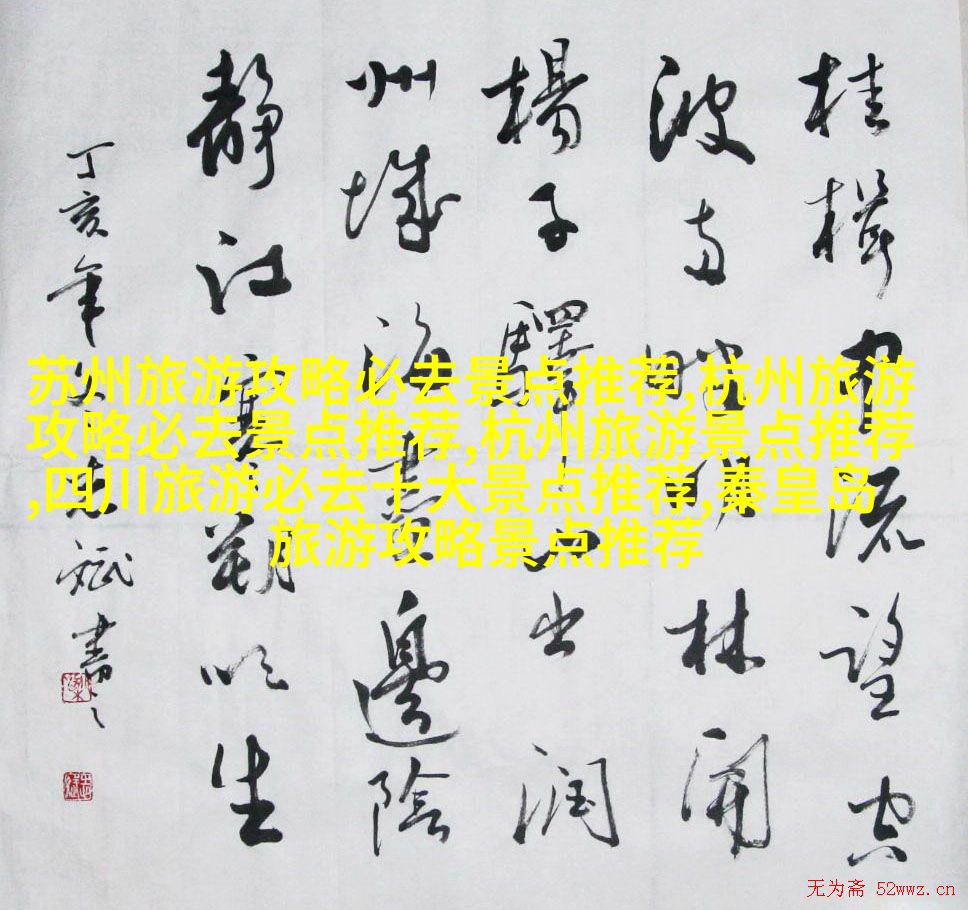 苏州旅游攻略必去景点推荐,杭州旅游
攻略必去景点推荐,杭州旅游景点推荐
,四川旅游必去十大景点推荐,秦皇岛
旅游攻略景点推荐
桂楫中流望空
波两畔明林開
楊子驛山出润
州城海盡邊陰
静江寒朔吹生
丁亥年斌書
无为斋 52wwz.cn